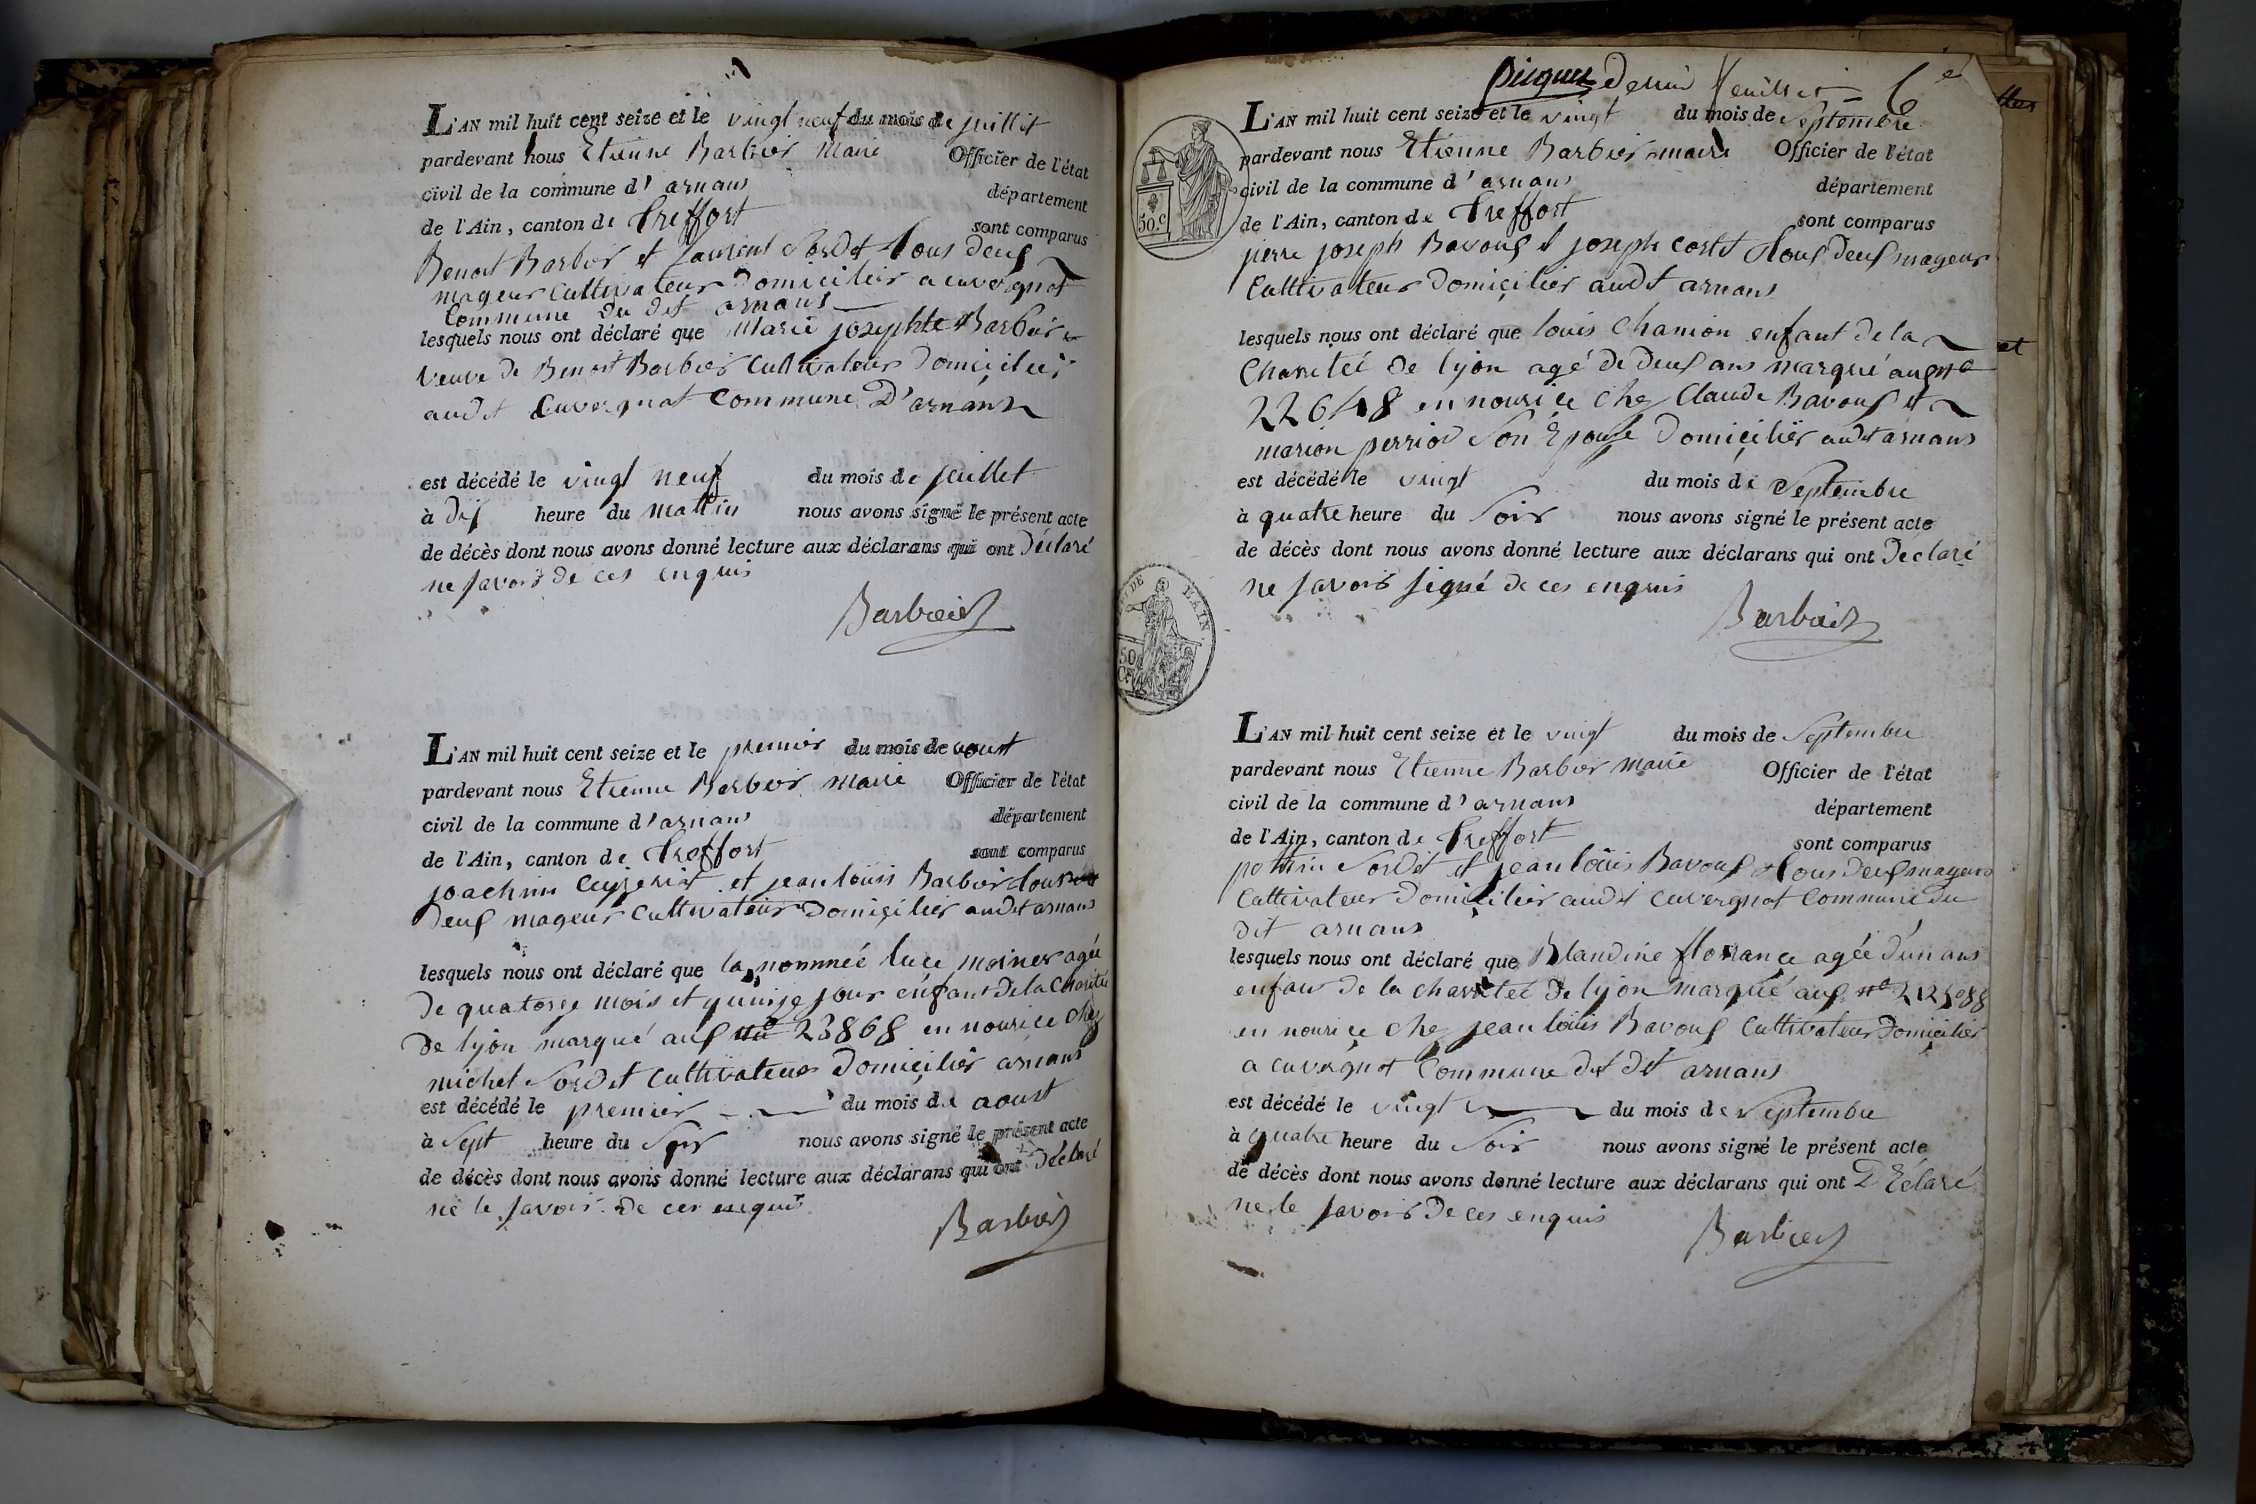 L'AN mil huit cent seize et le vingt neuf du mois de juillet
pardevant nous Etienne Barbier Maire Officier de l'état
civil de la commune d'arnans département
de l'Ain, canton de treffort sont comparus
Benoit Barbier et Laurent Sordet tous deux
mageur Cultivateur Domicilier a cuvergnat
Commune du dit arnans
lesquels nous ont déclaré que Marie josephte Barbier
veuve de Benoit Barbier Cultivateur Domicilier
audit Cuvergnat Commune D'arnans
est décédé le vingt neuf du mois de juillet
à dix heure du mattin nous avons signé le présent acte
de décès dont nous avons donné lecture aux déclarans qui ont Déclaré
ne savoir de ces enquis
Barbier
L'AN mil huit cent seize et le premier du mois de aoust
pardevant nous Etienne Barbier maire Officier de l'état
civil de la commune d'arnans département
de l'Ain, canton de treffort sont comparus
joachim Ceyzeriat et jean louis Barbier tous
Deux mageur Cultivateur Domicilier audit arnans
lesquels nous ont déclaré que la nommée luce moiner agée
De quatorze mois et quinze jour enfant de la Charité
De lyon marqué aux no 23868 en nourice chez
michel Sordet Cultivateur Domicilier arnans
est décédé le premier du mois de aoust
à Sept heure du Soir nous avons signé le présent acte
de décès dont nous avons donné lecture aux déclarans qui ont Déclaré
ne le savoir de ces enquis
Barbier
Deuxieme feuillet 6e
L'AN mil huit cent seize et le vingt du mois de Septembre
pardevant nous Etienne Barbier maire Officier de l'état
civil de la commune d'arnans département
50.c
de l'Ain, canton de treffort sont comparus
pierre joseph Bavoux et joseph Costet tous Deux mageur
Cultivateur Domicilier audit arnans
lesquels nous ont déclaré que louis Chanion enfant de la
Charitéé de lyon agé de deux ans marqué aux no
22648 en nourice chez Claude Bavoux et
marion perriod Son Epouse Domicilier audit arnans
est décédé le vingt du mois de Septembre
à quatre heure du Soir nous avons signé le présent acte
de décès dont nous avons donné lecture aux déclarans qui ont Declaré
ne savoir signé de ces enquis
Barbier
DE L'AIN.
50
L'AN mil huit cent seize et le vingt du mois de Septembre
pardevant nous Etienne Barbier Maire Officier de l'état
civil de la commune d'arnans département
de l'Ain, canton de treffort sont comparus
Sordet et jean louis Bavoux tous deux mageur
Cultivateur Domicilier audit cuvergnat Commune du
dit arnans
lesquels nous ont déclaré que Blandine florance agée d'un ans
enfans de la charitéé de lyon marqué aux no
en nourice chez jean louis Bavoux Cultivateur Domicilier
a cuvergnat Commune dudit arnans
est décédé le vingt du mois de Septembre
à quatre heure du Soir nous avons signé le présent acte
de décès dont nous avons donné lecture aux déclarans qui ont DEclaré
ne le savoir de ces enquis
Barbier